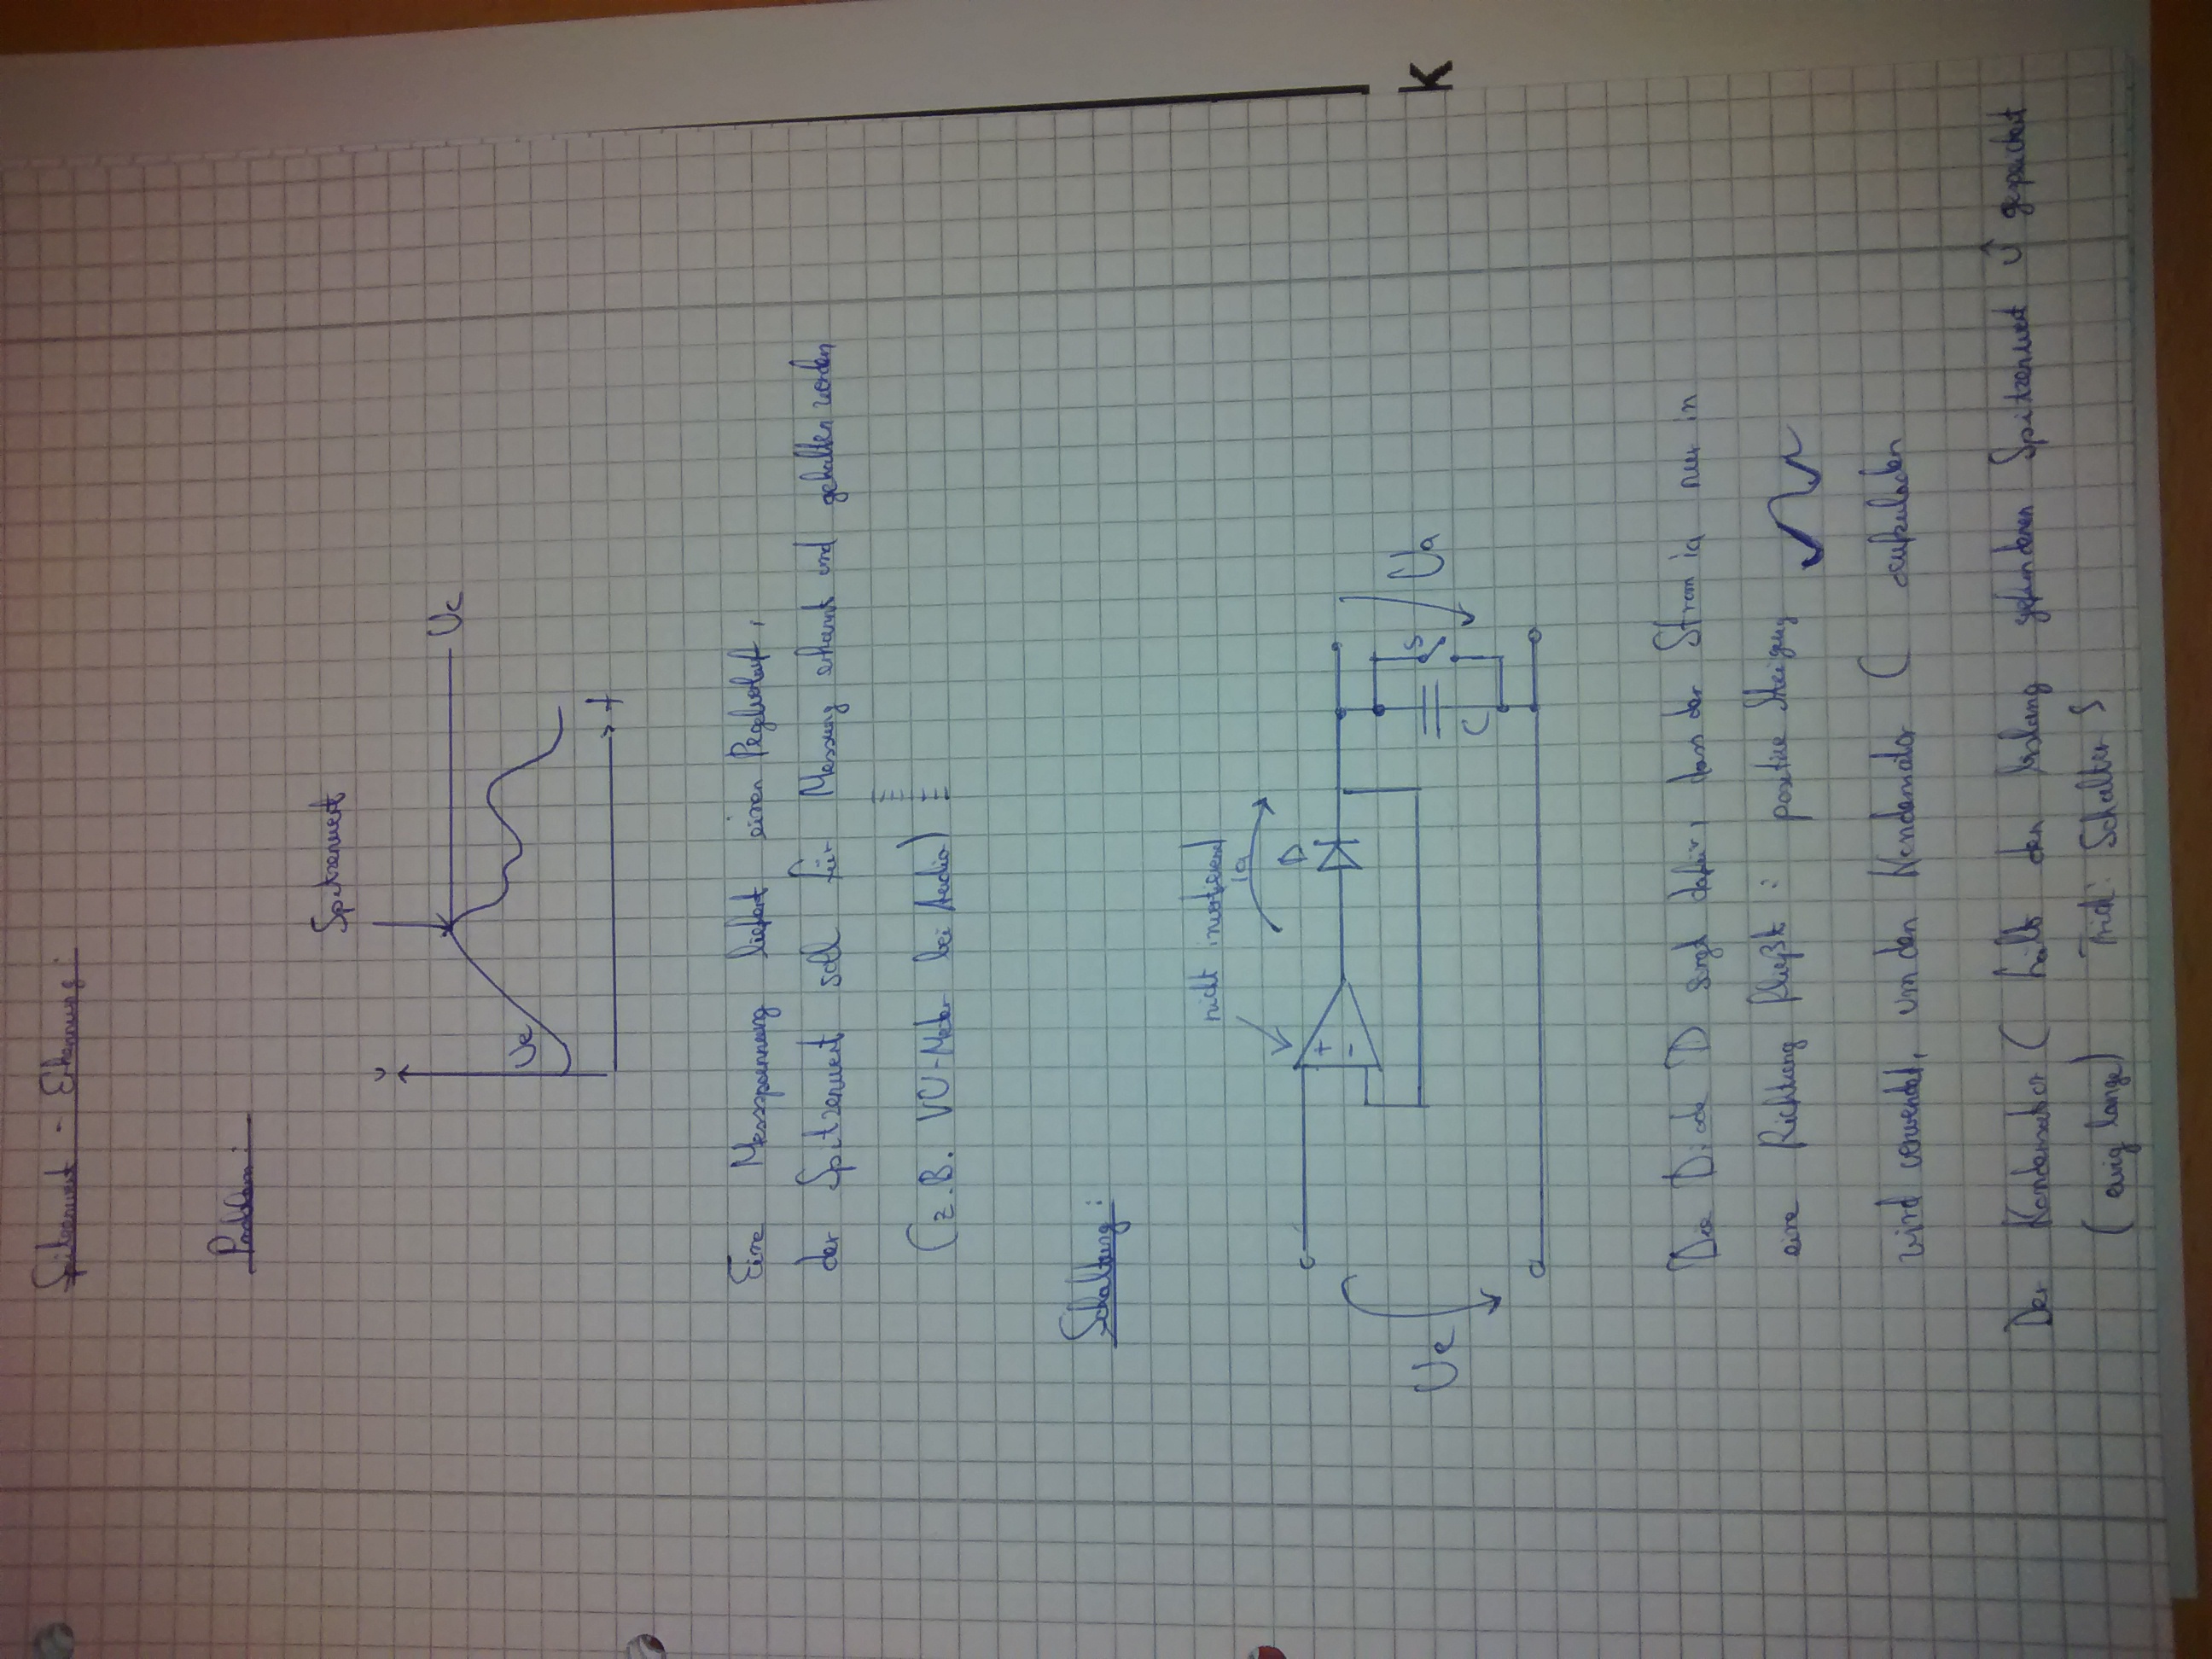 Spitzenwert - Erkennung:
Problem:
Spitzenwert
U
Ue
Uc
t
Eine Messspannung liefert einen Pegelverlauf,
der Spitzenwert soll für Messung erkannt und gehalten werden
(z.B. VU-Meter bei Audio)
Schaltung:
nicht invertierend
ia
D
+
-
S
C
Ue
Ua
Die Diode D sorgt dafür, dass der Strom ia nur in
eine Richtung fließt: positive Steigung
wird verwendet, um den Kondensator C aufzuladen
Der Kondensator C hält den bislang gefundenen Spitzenwert Û gespeichert
(ewig lange) Schalter S
K